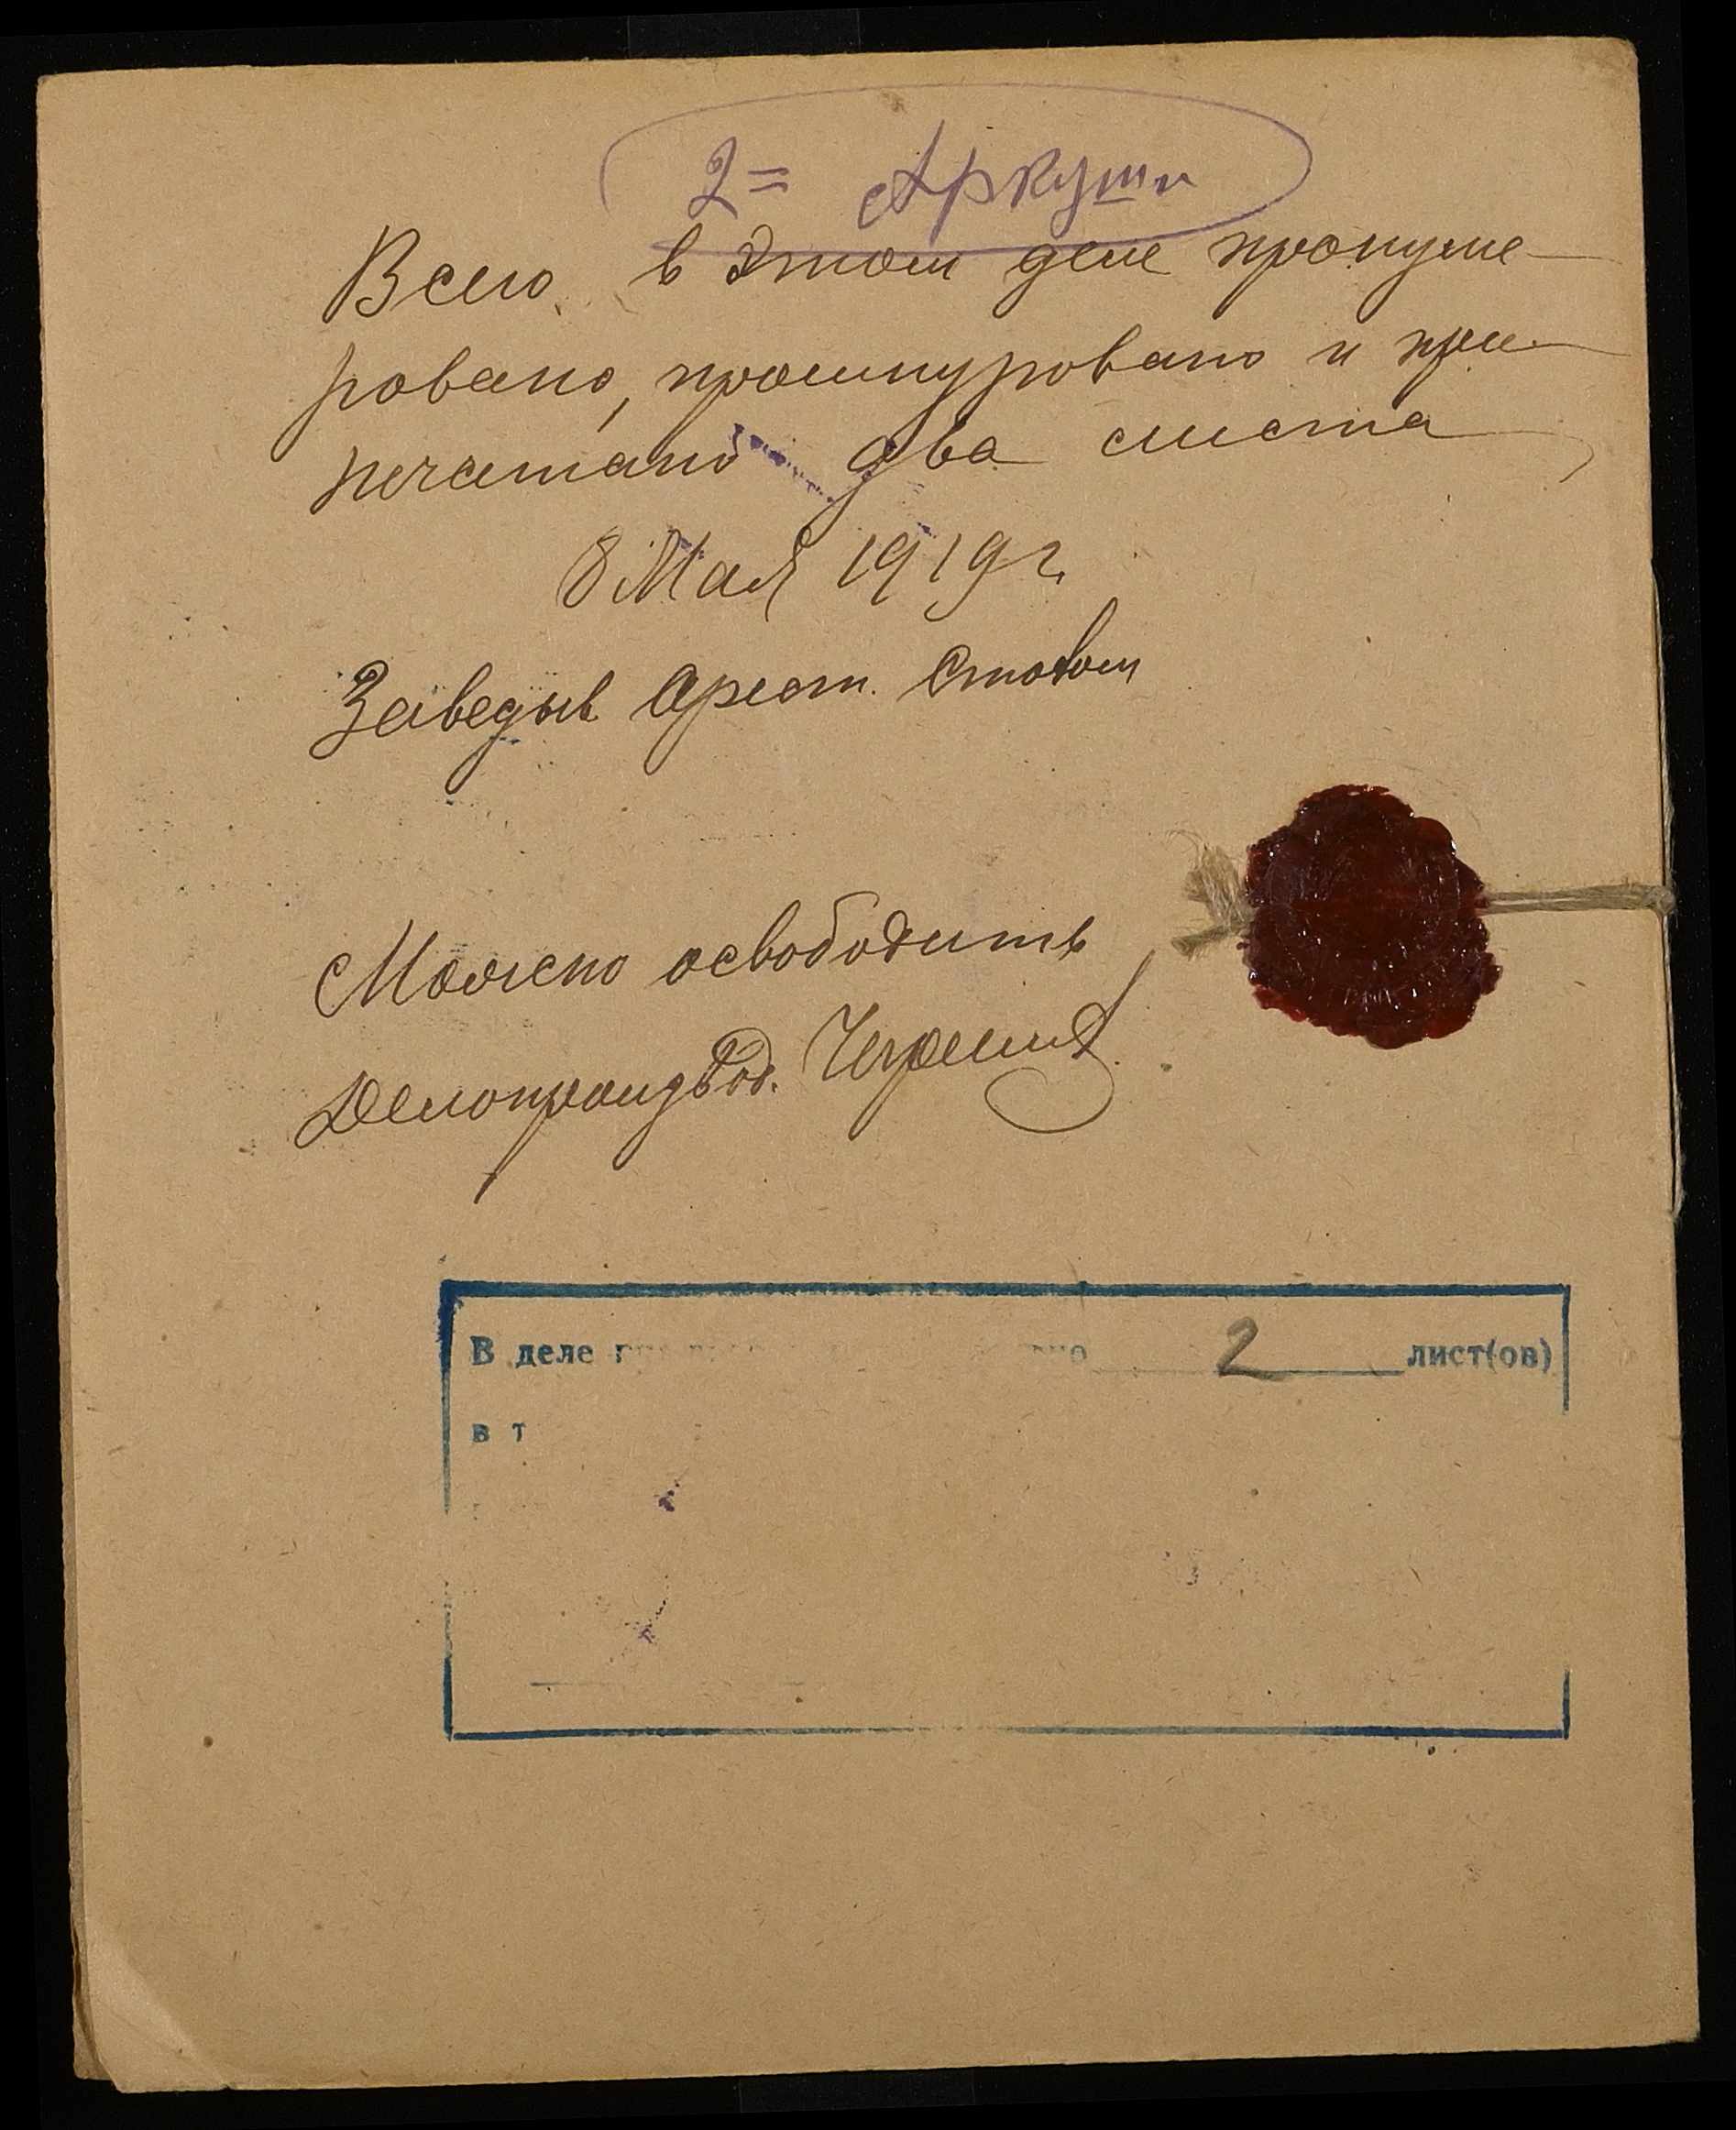 2= Аркуши
Всего в этом деле пронуме-
ровано, прошнуровано и при-
печатано два листа
8 Мая 1919 г.
Заведыв Арест. Столом
Можно освободить
Делопроизвод.
В деле 2 лист(ов)
в т